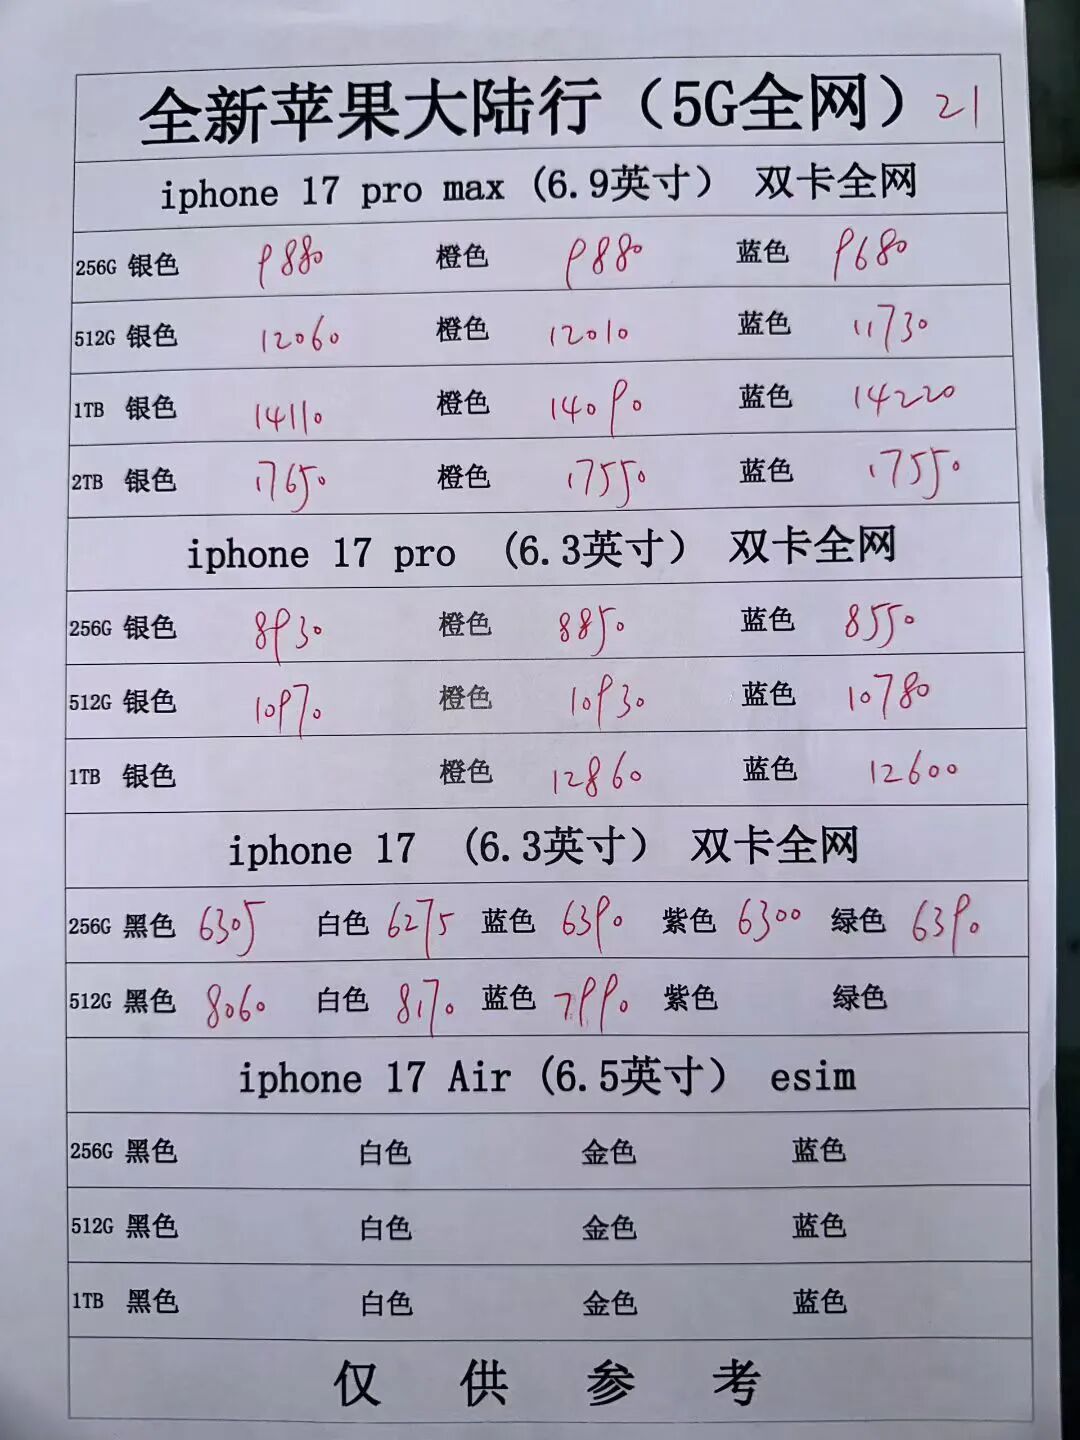 全新苹果大陆行（5G全网）21
iphone 17 pro max (6.9英寸） 双卡全网
256G 银色 9880 橙色 9880 蓝色 9680
512G 银色 12060 橙色 12010 蓝色 11730
1TB 银色 14110 橙色 14090 蓝色 14220
2TB 银色 17650 橙色 17550 蓝色 17550
iphone 17 pro (6.3英寸） 双卡全网
256G 银色 8930 橙色 8850 蓝色 8550
512G 银色 10970 橙色 10930 蓝色 10780
1TB 银色 橙色 12860 蓝色 12600
iphone 17 (6.3英寸） 双卡全网
256G 黑色 6305 白色 6275 蓝色 6390 紫色 6300 绿色 6390
512G 黑色 8060 白色 8170 蓝色 7990 紫色 绿色
iphone 17 Air (6.5英寸） esim
256G 黑色 白色 金色 蓝色
512G 黑色 白色 金色 蓝色
1TB 黑色 白色 金色 蓝色
仅供参考